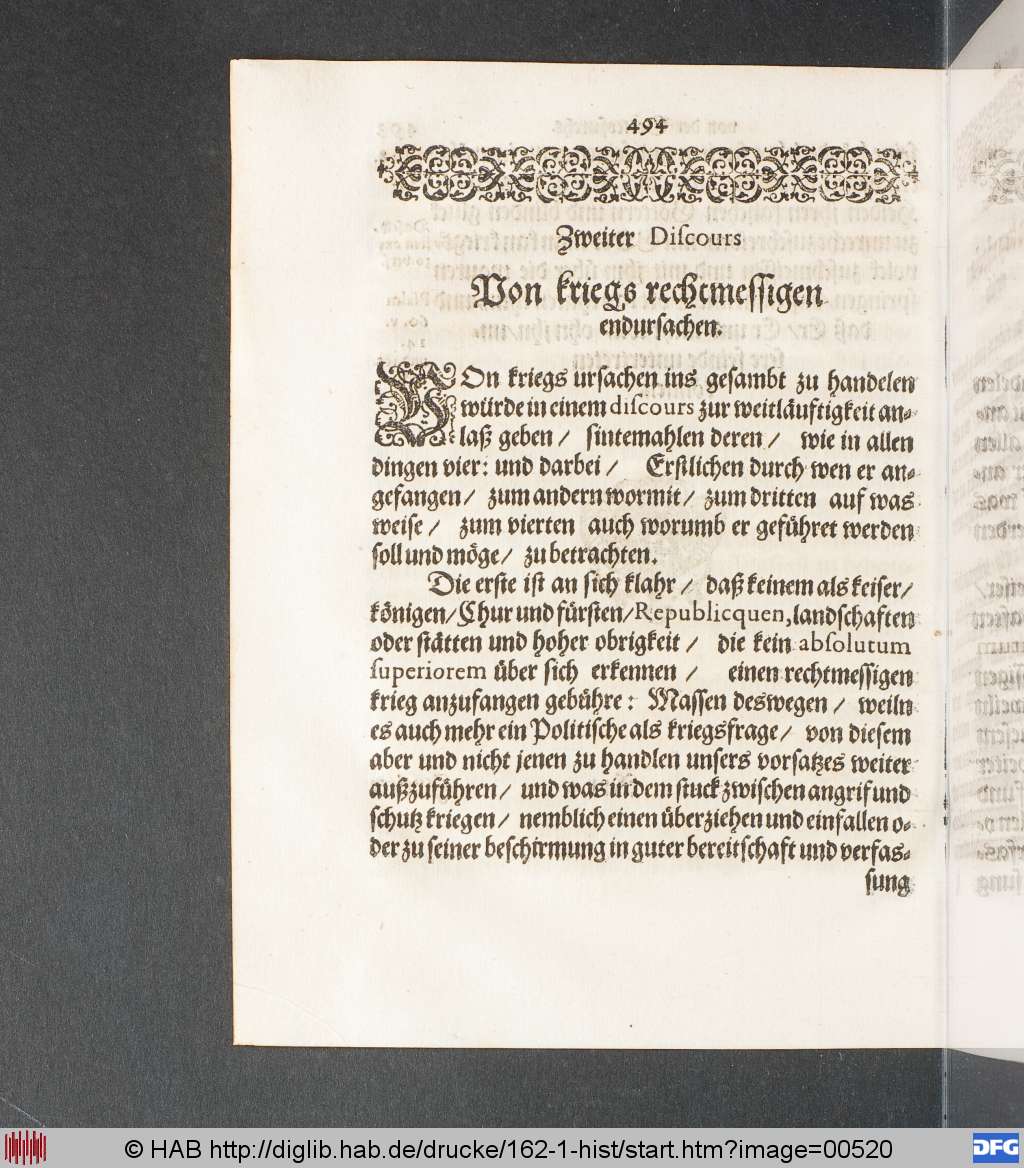 494
Zweiter Diſcours
Von kriegs rechtmeſſigen
endurſachen.
VOn kriegs urſachen ins geſambt zu handelen
würde in einem diſcours zur weitläuftigkeit an⸗
laß geben / ſintemahlen deren / wie in allen
dingen vier: und darbei / Erſtlichen durch wen er an⸗
gefangen / zum andern wormit / zum dritten auf was
weiſe / zum vierten auch worumb er geführet werden
ſoll und möge / zu betrachten.
Die erſte iſt an ſich klahr / daß keinem als keiſer /
königen / Chur und fürſten / Republicquen, landſchaften
oder ſtätten und hoher obrigkeit / die kein abſolutum
ſuperiorem über ſich erkennen / einen rechtmeſſigen
krieg anzufangen gebühre: Maſſen deswegen / weiln
es auch mehr ein Politiſche als kriegsfrage / von dieſem
aber und nicht jenen zu handlen unſers vorſatzes weiter
außzuführen / und was in dem ſtuck zwiſchen angrif und
ſchutz kriegen / nemblich einen überziehen und einfallen o⸗
der zu ſeiner beſchirmung in guter bereitſchaft und verfaſ⸗
ſung
© HAB http://diglib.hab.de/drucke/162-1-hist/start.htm?image=00520
DFG